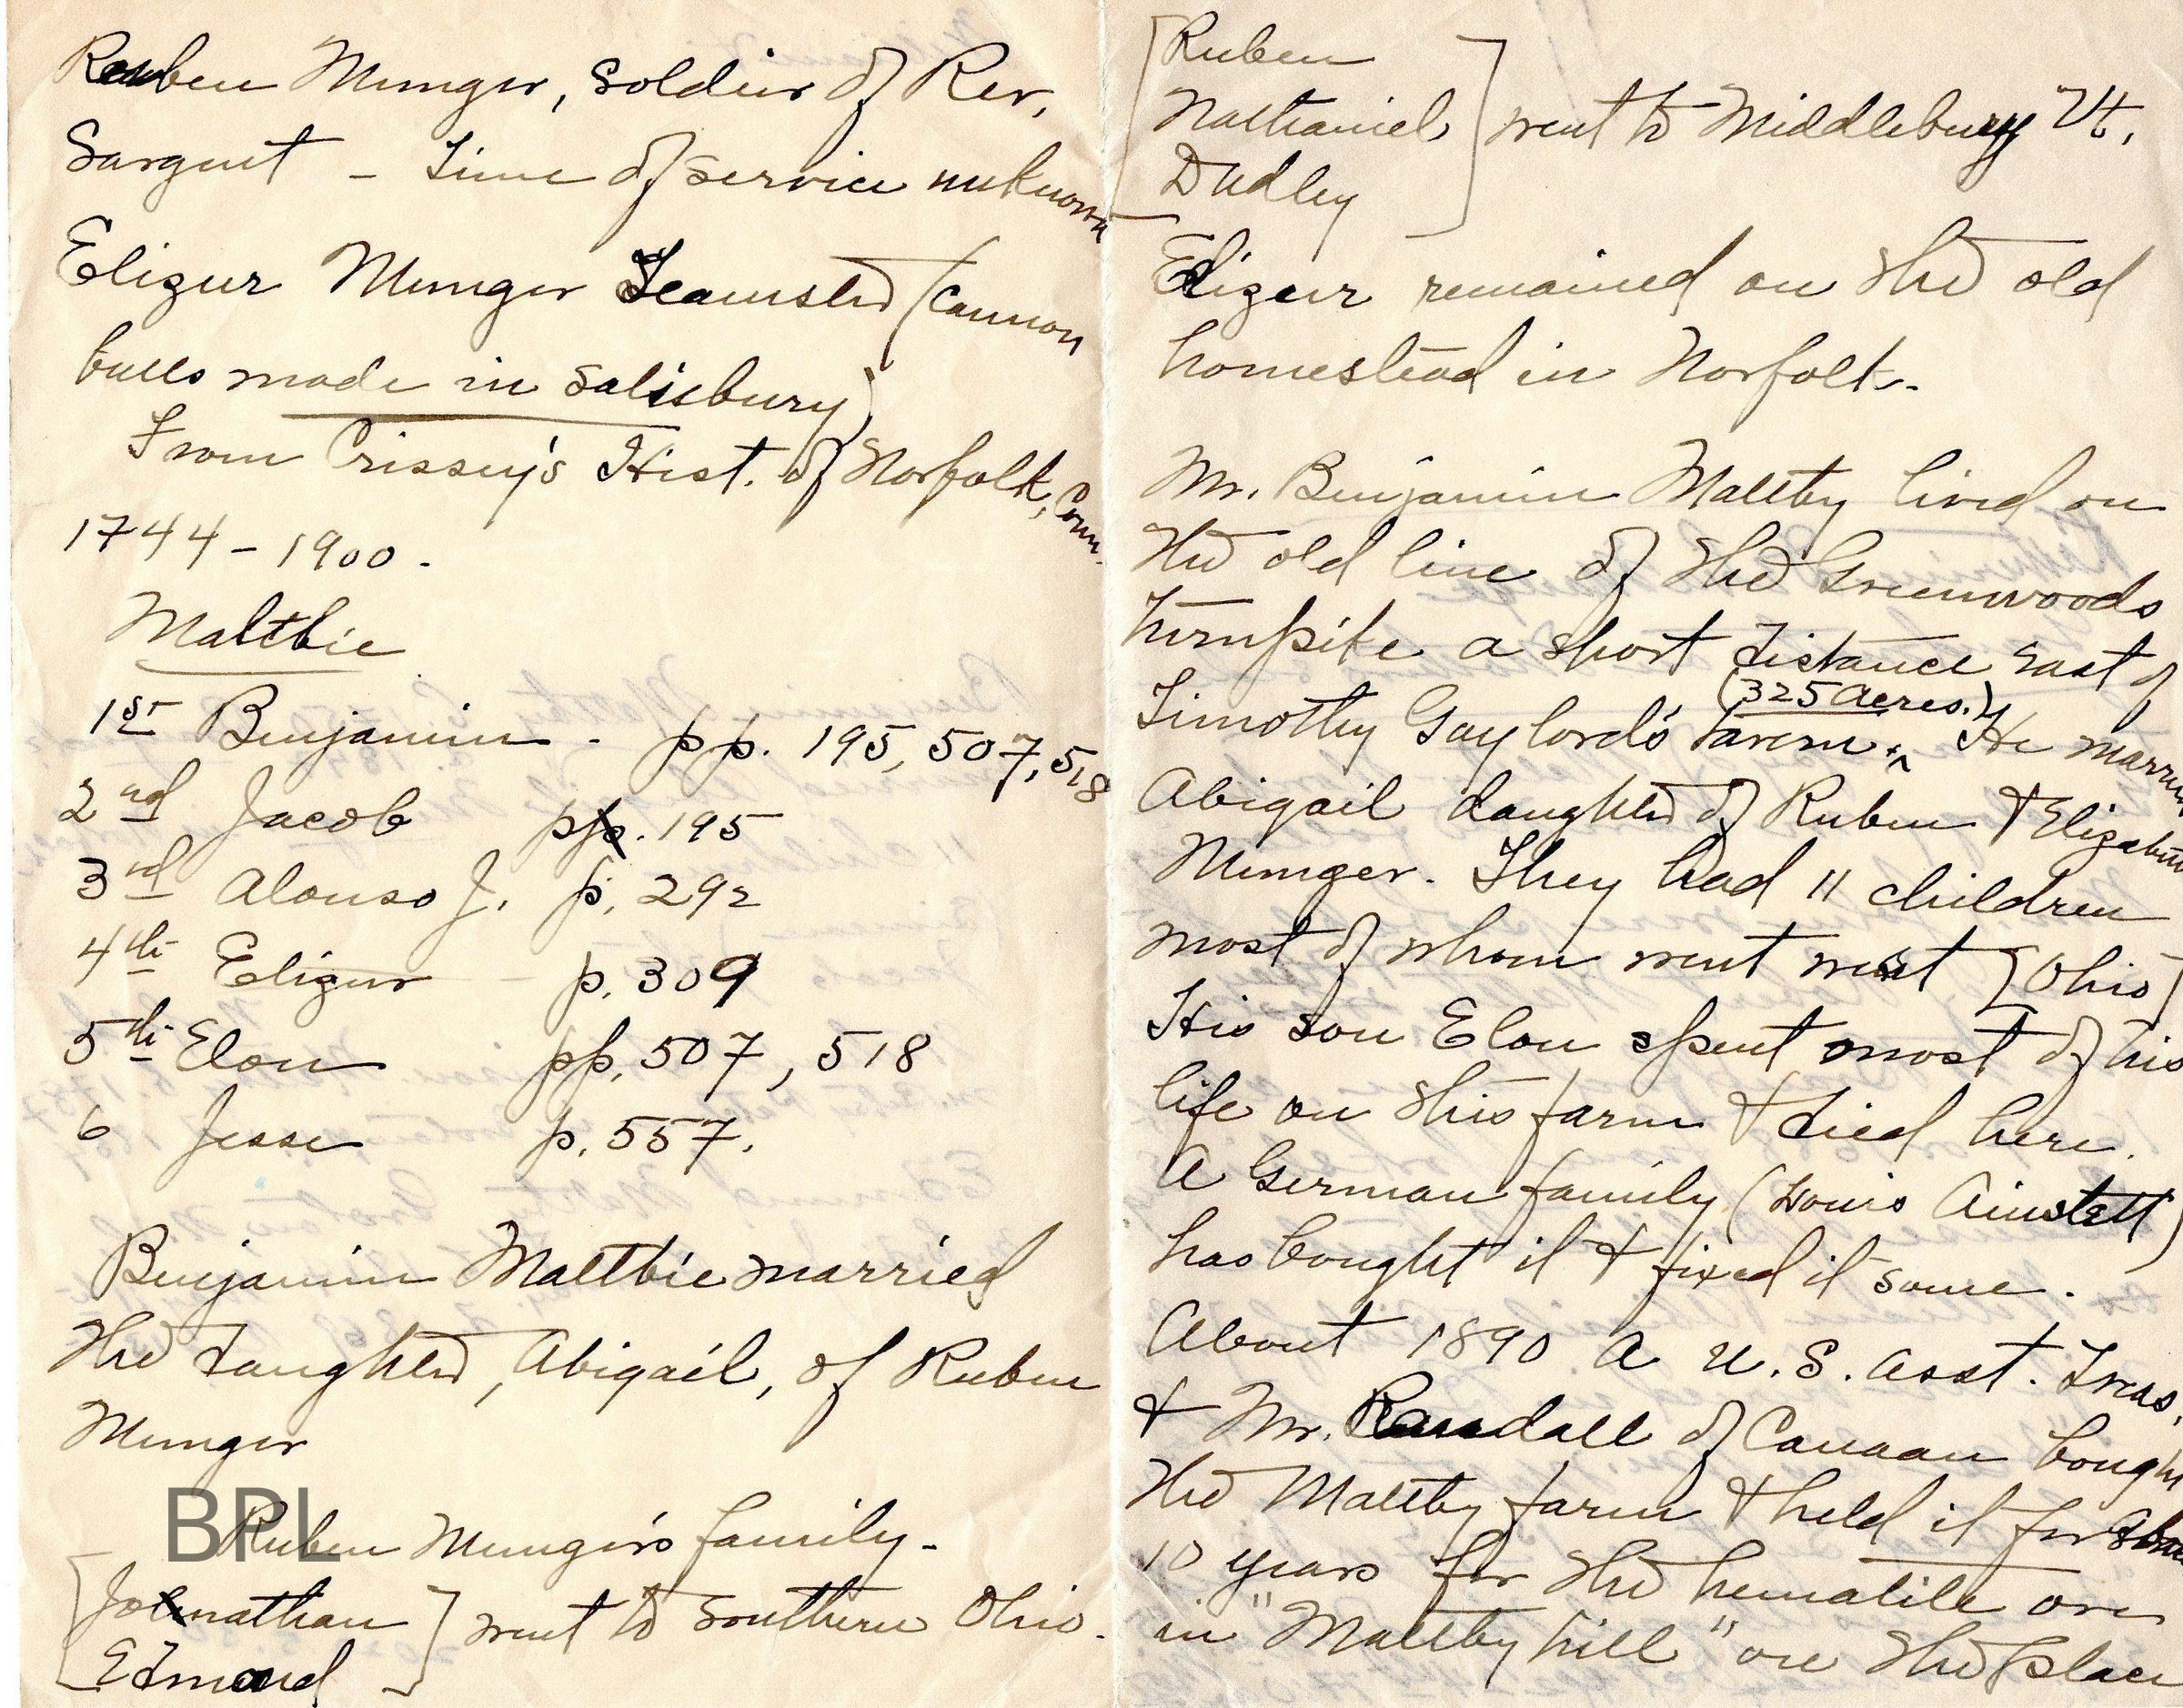 Reuben Munger, Soldier of Rev.
Sargent - Time of service unknown
Elizur Munger Teamster (Cannon
balls made in Salisbury)
From Crissey's Hist. of Norfolk, Conn.
1744-1900.
Maltbie
1st Benjamin - pp. 195, 507, 518
2nd Jacob p. 195
3rd Alonso J. p. 292
4th Elizur - p. 309
5th Elon pp. 507, 518
6 Jesse p. 557.
Benjamin Maltbie married
the daughter, Abigail, of Ruben
Munger
BPL
Ruben Munger's family-
[Jonathan
Edmund] went to Southern Ohio.
[Ruben
Nathaniel
Dudley] went to Middlebury Vt.
Elizur remained on the old
homestead in Norfolk.
Mr. Benjamin Maltby lived on
the old line of the Greenwoods
turnpike a short distance east of
Timothy Gaylord's tavern. (325 acres.) He married
Abigail daughter of Ruben & Elizabeth
Munger. They had 11 children
most of whom went west [Ohio]
His son Elon spent most of his
life on this farm & died here.
A German family (Louis Ainstett)
has bought it & fixed it some.
About 1890 a U.S. Asst. Treas.
& Mr. Randall of Canaan bought
the Maltby farm & held it for about
10 years for the hematite ore
in "Maltby hill" on the place